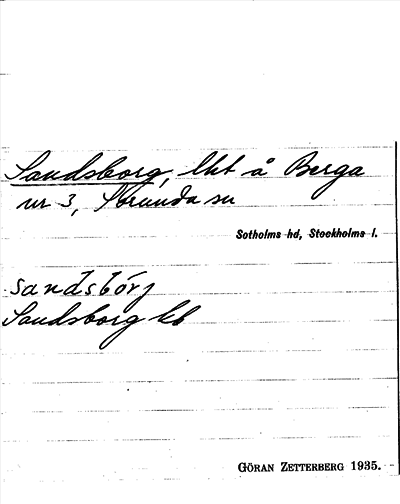 Sandsborg, lht å Berga
nr 3, Sorunda sn
Sotholms hd, Stockholms l.
sandsbórj
Sandsborg kb
GÖRAN ZETTERBERG 1935.